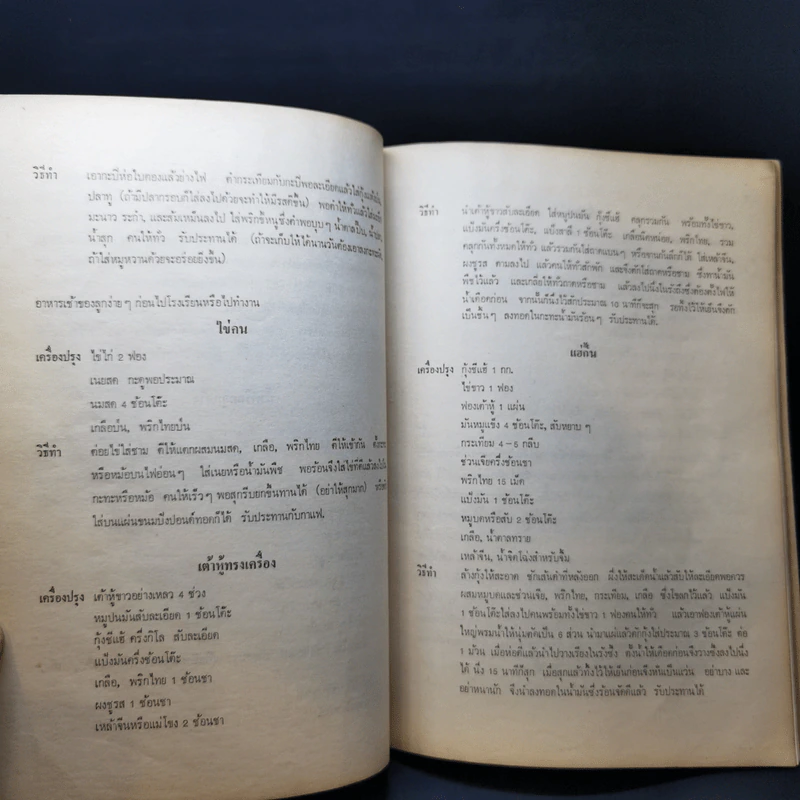 วิธีทำ เอากะปิห่อใบตองแล้วย่างไฟ ตำกระเทียมกับกะปิพอละเอียดแล้วใส่กุ้งแห้งป่น
ปลาทู (ถ้ามีปลากรอบก็ใส่ลงไปด้วยจะทำให้มีรสดีขึ้น) พอตำให้ทั่วแล้วใส่
มะนาว ระกำ, และส้มเหม็นลงไป ใส่พริกขี้หนูซึ่งตำพอบุบๆ น้ำตาลปีบ,
น้ำสุก คนให้ทั่ว รับประทานได้ (ถ้าจะเก็บให้ได้นานวันต้องเอาลงกะทะผัด,
ถ้าใส่หมูหวานด้วยจะอร่อยยิ่งขึ้น)
อาหารเช้าของลูกง่ายๆ ก่อนไปโรงเรียนหรือไปทำงาน
ไข่คน
เครื่องปรุง ไข่ไก่ 2 ฟอง
เนยสด กะดูพอประมาณ
นมสด 4 ช้อนโต๊ะ
เกลือป่น, พริกไทยป่น
วิธีทำ ต่อยไข่ใส่ชาม ตีให้แตกผสมนมสด, เกลือ, พริกไทย ตีให้เข้ากัน
หรือหม้อบนไฟอ่อนๆ ใส่เนยหรือน้ำมันพืช พอร้อนจึงใส่ไข่ที่ตีแล้วลงไปใน
กะทะหรือหม้อ คนให้เร็วๆ พอสุกรีบยกขึ้นทานได้ (อย่าให้สุกมาก)
ใส่บนแผ่นขนมปังปอนด์ทอดก็ได้ รับประทานกับกาแฟ,
เต้าหู้ทรงเครื่อง
เครื่องปรุง เต้าหู้ขาวอย่างเหลว 4 ช่วง
หมูปนมันสับละเอียด 1 ช้อนโต๊ะ
กุ้งชีแฮ้ ครึ่งกิโล สับละเอียด
แป้งมันครึ่งช้อนโต๊ะ
เกลือ, พริกไทย 1 ช้อนชา
ผงชูรส 1 ช้อนชา
เหล้าจีนหรือแม่โขง 2 ช้อนชา
วิธีทำ นำเต้าหู้ขาวสับละเอียด ใส่หมูปนมัน กุ้งชีแฮ้ คลุกรวมกัน พร้อมทั้งไข่ขาว,
แป้งมันครึ่งช้อนโต๊ะ, แป้งสาลี 1 ช้อนโต๊ะ เกลือนิดหน่อย, พริกไทย, รวม
คลุกกันทั้งหมดให้ทั่ว แล้วรวมกันใส่ถาดแบนๆ หรือจานก้นลึกก็ได้ ใส่เหล้าจีน,
ผงชูรส ตามลงไป แล้วคนให้ทั่วสักพัก และจึงตักใส่ถาดหรือชาม ซึ่งทาน้ำมัน
พืชไว้แล้ว และเกลี่ยให้ทั่วถาดหรือชาม แล้วลงไปนึ่งในรังถึงซึ่งต้องตั้งไฟให้
น้ำเดือดก่อน จากนั้นก็นึ่งไว้สักประมาณ 10 นาทีก็จะสุก รอทิ้งไว้ให้เย็นจึงตัก
เป็นชิ้นๆ ลงทอดในกะทะน้ำมันร้อนๆ รับประทานได้.
แฮ่กึ๊น
เครื่องปรุง กุ้งชีแฮ้ 1 กก.
ไข่ขาว 1 ฟอง
ฟองเต้าหู้ 1 แผ่น
มันหมูแข็ง 4 ช้อนโต๊ะ, สับหยาบๆ
กระเทียม 4-5 กลีบ
ซ่วนเจียครึ่งช้อนชา
พริกไทย 15 เม็ด
แป้งมัน 1 ช้อนโต๊ะ
หมูบดหรือสับ 2 ช้อนโต๊ะ
เกลือ, น้ำตาลทราย
เหล้าจีน, น้ำจิ้มโฉ่งสำหรับจิ้ม
วิธีทำ ล้างกุ้งให้สะอาด ชักเส้นดำที่หลังออก ผึ่งให้สะเด็ดน้ำแล้วสับให้ละเอียดพอควร
ผสมหมูบดและซ่วนเจีย, พริกไทย, กระเทียม, เกลือ ซึ่งโขลกไว้แล้ว แป้งมัน
1 ช้อนโต๊ะใส่ลงไปคนพร้อมทั้งไข่ขาว 1 ฟองคนให้ทั่ว แล้วเอาฟองเต้าหู้แผ่น
ใหญ่พรมน้ำให้นุ่มตัดเป็น 6 ส่วน นำมาแผ่แล้วตักกุ้งใส่ประมาณ 3 ช้อนโต๊ะ ต่อ
1 ม้วน เมื่อห่อดีแล้วนำไปวางเรียงในรังซึ้ง ตั้งน้ำให้เดือดก่อนจึงวางซึ้งลงไปนึ่ง
ได้ นึ่ง 15 นาทีก็สุก เมื่อสุกแล้วทิ้งไว้ให้เย็นก่อนจึงหั่นเป็นแว่น อย่าบาง และ
อย่าหนานัก จึงนำลงทอดในน้ำมันซึ่งร้อนจัดดีแล้ว รับประทานได้